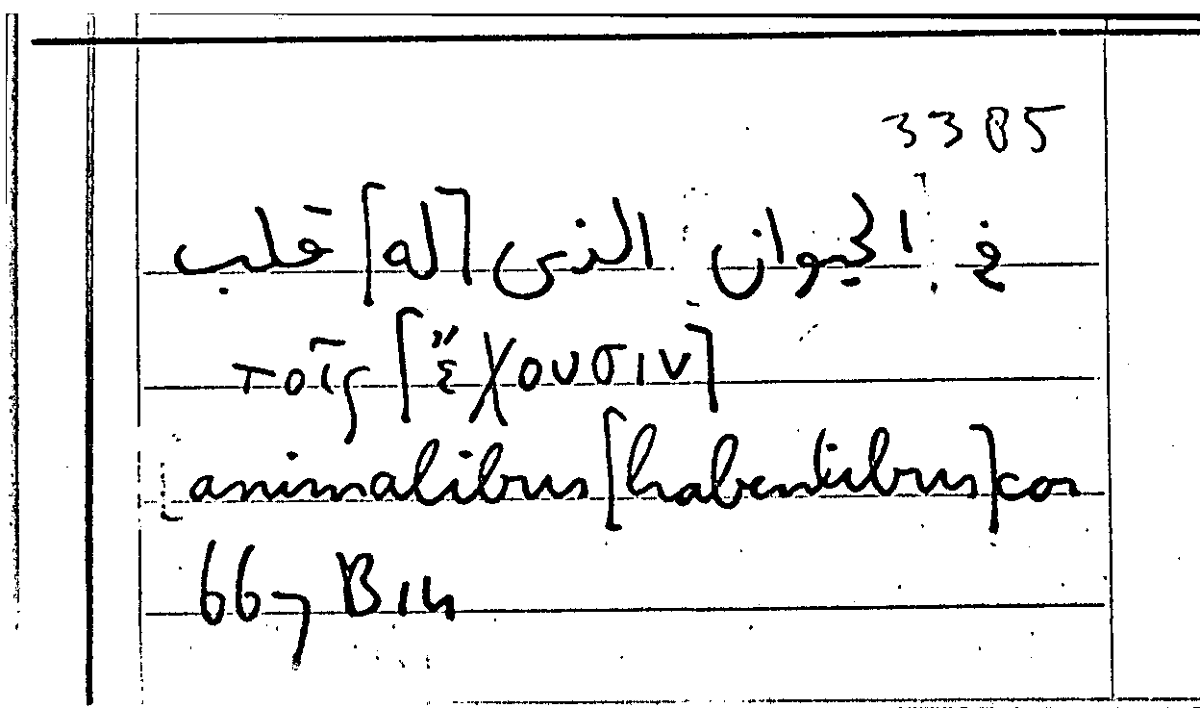 3385
في الحيوان الذى [له] قلب
τοῖς [ἔχουσιν]
animalibus [habentibus] cor
667 B 14